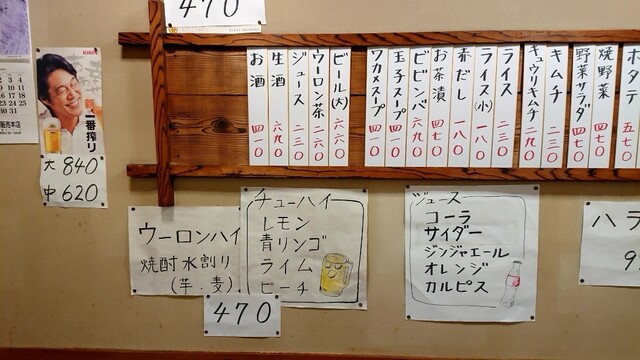 470
KIRIN
一番搾り
大 840
中 620
ホタテ 五七〇
焼野菜
野菜サラダ 四七〇
キムチ 二三〇
キュウリキムチ 二九〇
ライス 二三〇
ライス(小) 一八〇
赤だし 一八〇
お茶漬 四七〇
ビビンバ 六九〇
玉子スープ 四一〇
ワカメスープ 四一〇
ビール(大) 六六〇
ウーロン茶 二六〇
ジュース 二三〇
生酒 六九〇
お酒 四一〇
ウーロンハイ
焼酎水割り
(芋・麦)
チューハイ
レモン
青リンゴ
ライム
ピーチ
470
ジュース
コーラ
サイダー
ジンジャエール
オレンジ
カルピス
ハラ
9